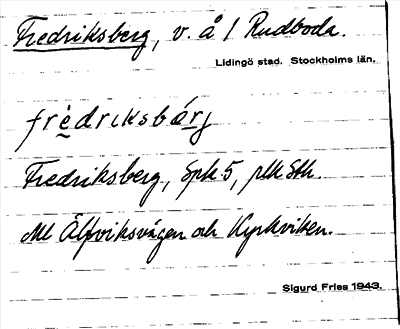 Fredriksberg, v. å / Rudboda.
Lidingö stad. Stockholms län.
frèdrıksbárj
Fredriksberg, Spk 5, plk Sth.
Ml Älfviksvägen och Kyrkviken.
Sigurd Fries 1943.